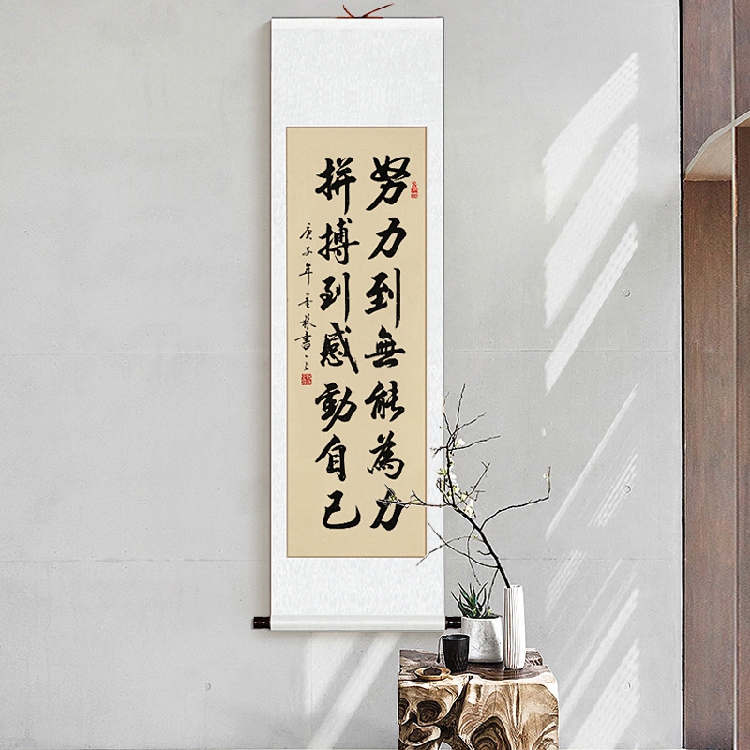 努力到無能為力
拼搏到感動自己
庚子年
書